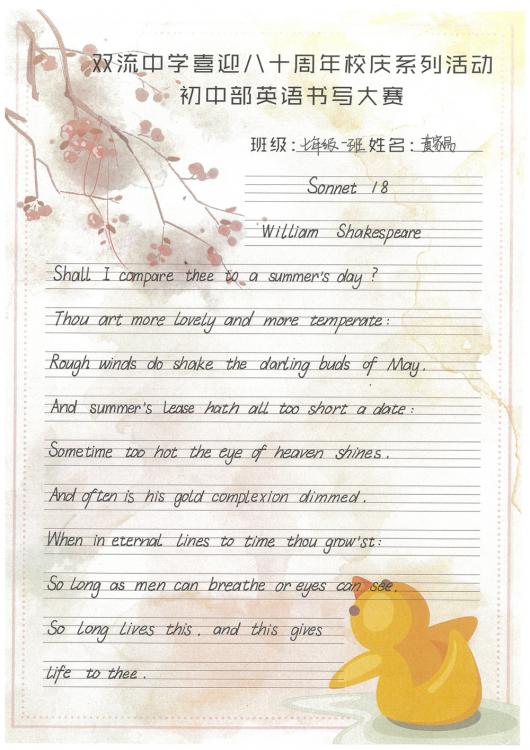 双流中学喜迎八十周年校庆系列活动
初中部英语书写大赛
班级：七年级一班 姓名：
Sonnet 18
William Shakespeare
Shall I compare thee to a summer's day ?
Thou art more lovely and more temperate :
Rough winds do shake the darling buds of May.
And summer's lease hath all too short a date :
Sometime too hot the eye of heaven shines.
And often is his gold complexion dimmed.
When in eternal lines to time thou grow'st:
So long as men can breathe or eyes can see.
So long lives this. and this gives
life to thee.